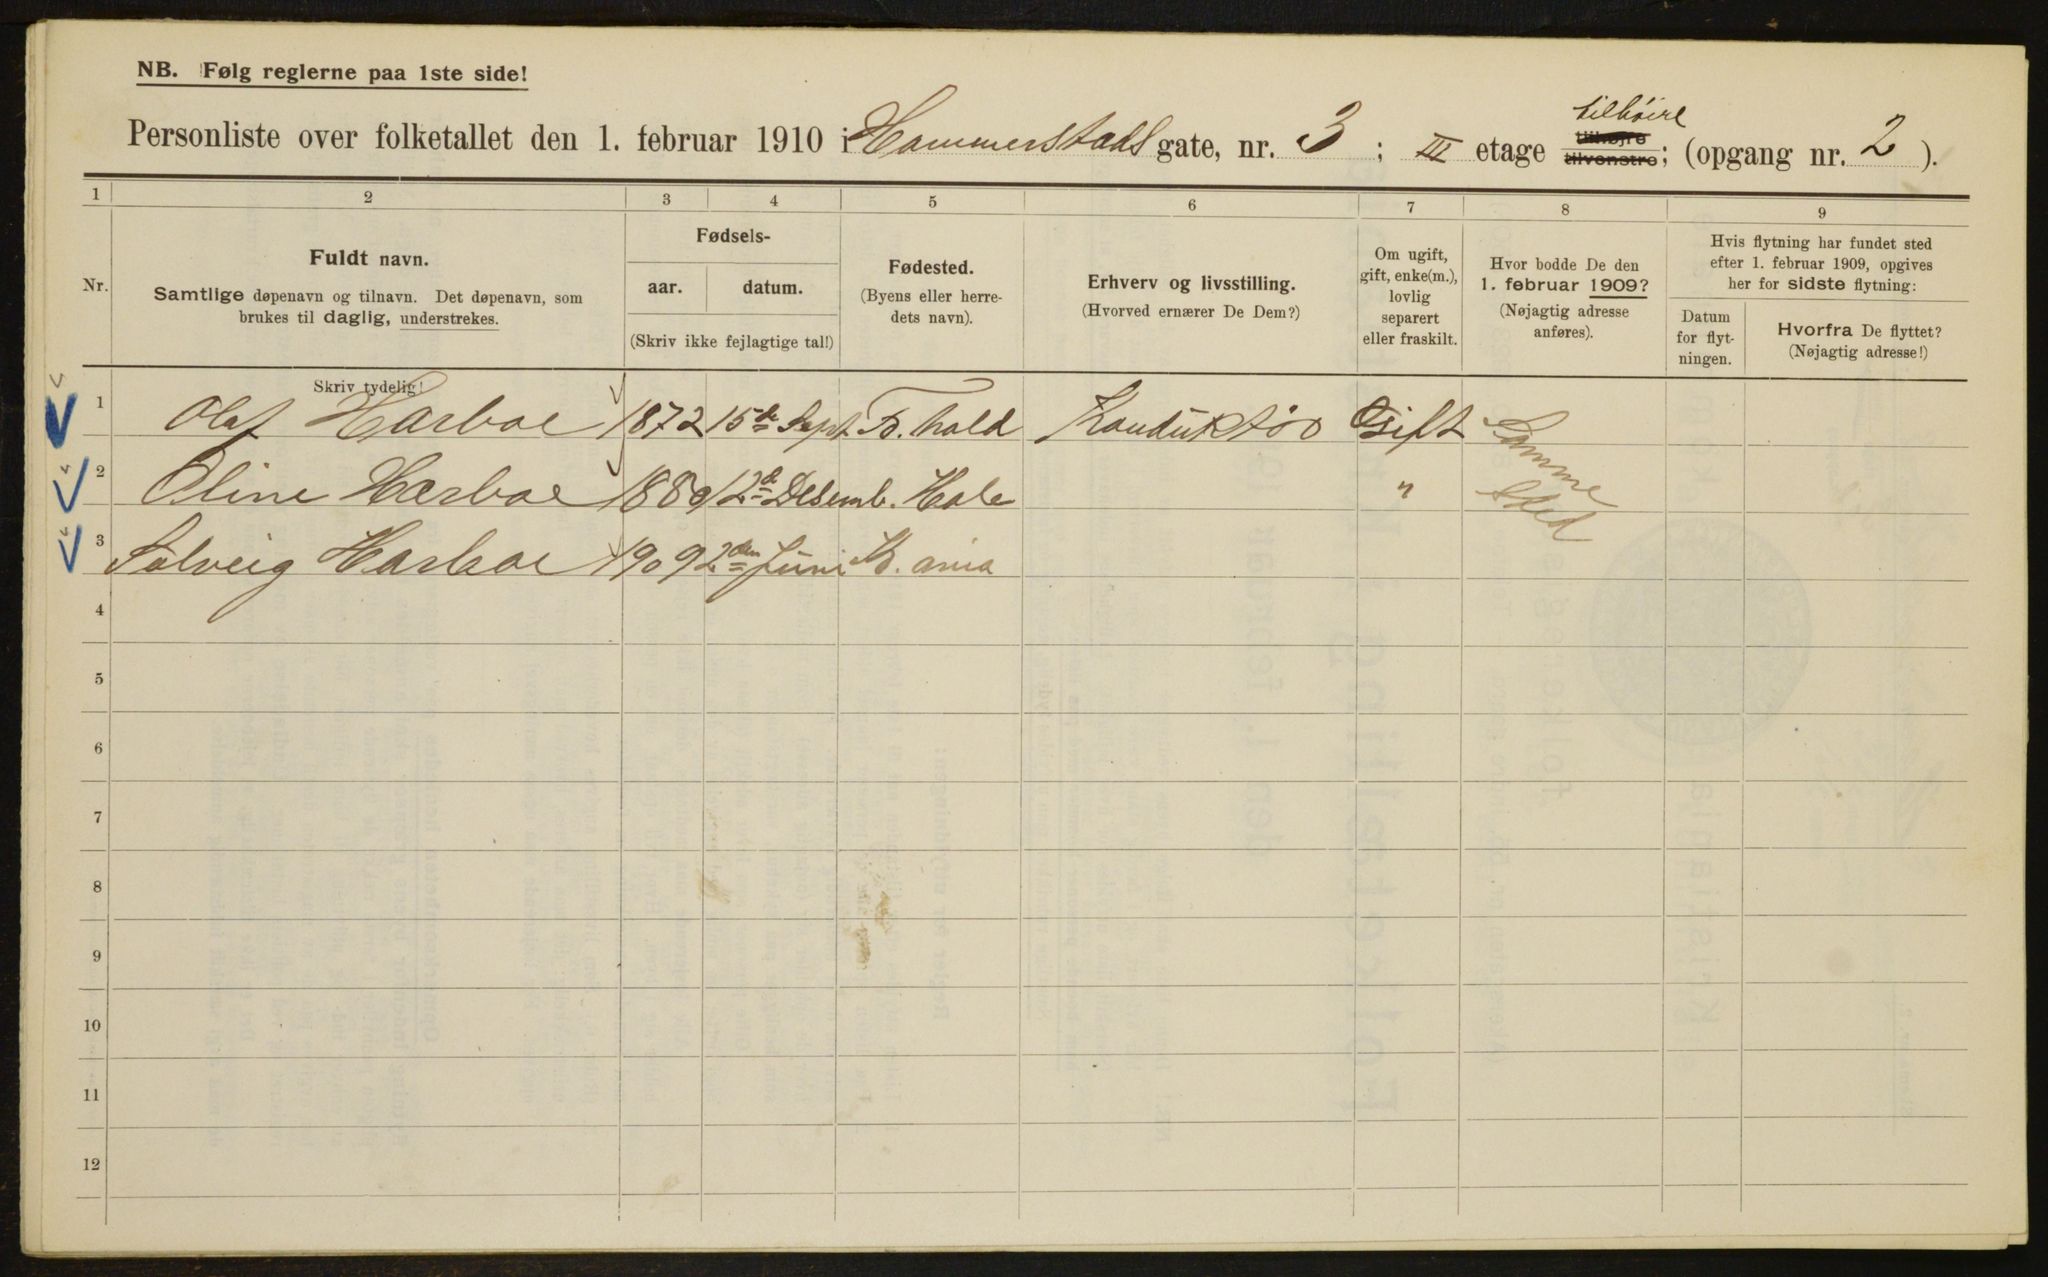 NB. Følg reglerne paa 1ste side!
tilhöire
Personliste over folketallet den 1. februar 1910 i Hammerstads gate, nr. 3 ; III etage tilhøjre tilvenstre; (opgang nr. 2 ).
1 2 3 4 5 6 7 8 9
Nr.
Fuldt navn.
Samtlige døpenavn og tilnavn. Det døpenavn, som
brukes til daglig, understrekes.
Fødsels-
aar. datum.
(Skriv ikke fejlagtige tal!)
Fødested.
(Byens eller herre-
dets navn).
Erhverv og livsstilling.
(Hvorved ernærer De Dem?)
Om ugift,
gift, enke(m.),
lovlig
separert
eller fraskilt.
Hvor bodde De den
1. februar 1909?
(Nøjagtig adresse
anføres).
Hvis flytning har fundet sted
efter 1. februar 1909, opgives
her for sidste flytning:
Datum
for flyt-
ningen.
Hvorfra De flyttet?
(Nøjagtig adresse!)
Skriv tydelig!
1 Olaf Harboe 1872 15de Sept. F. hald Konduktör Gift Samme
2 Oline Harboe 1880 12te Desemb. Hole " Sted
3 Solveig Harboe 1909 2den Juni K. ania
4
5
6
7
8
9
10
11
12